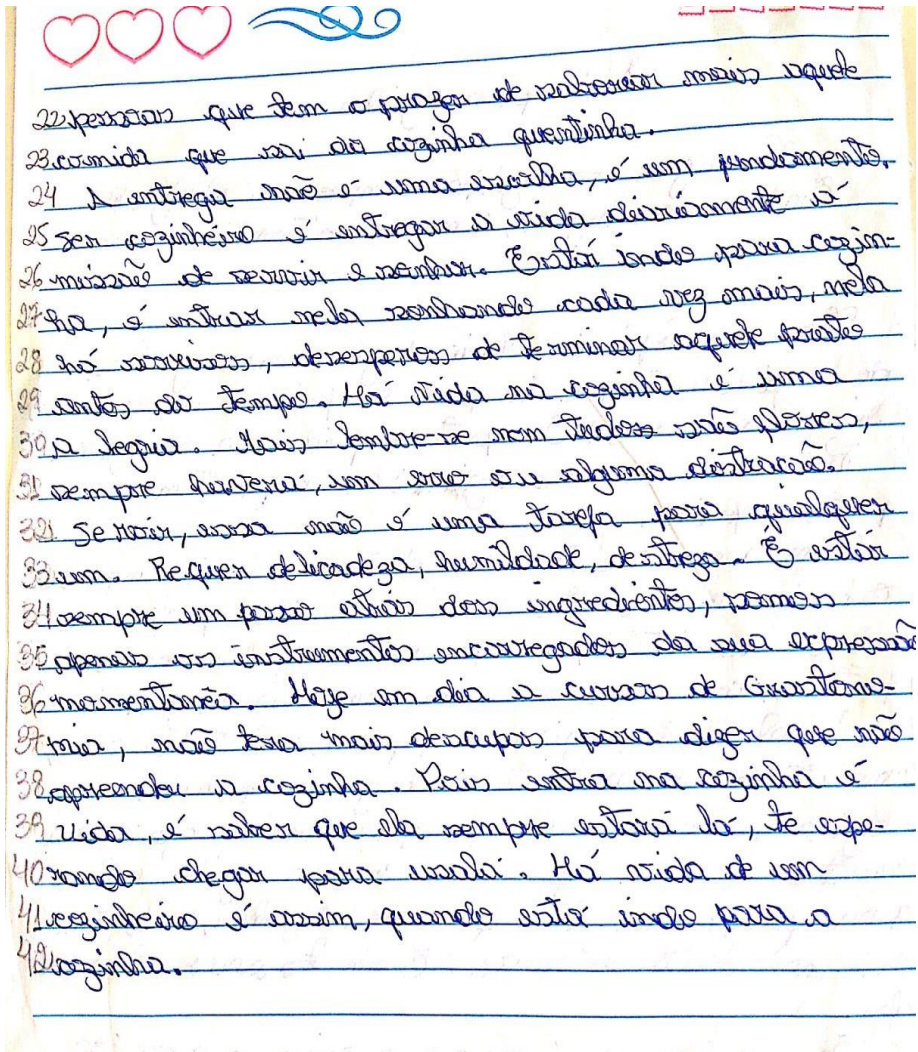 22 pessoas que tem o prazer de saborear mais aquele
23 comida que sai da cozinha quentinha.
24 A entrega não é uma escolha, é um fundamento.
25 Ser cozinheiro é entregar a vida diariamente á
26 missão de servir e sonhar. Está indo para cozin-
27 ha, é entrar nela sonhando cada vez mais, nela
28 há sorrisos, desesperos de terminar aquele prato
29 antes do tempo. Há vida na cozinha é uma
30 a legria. Mais lembre-se nem tudos são flores,
31 sempre havera, um erro ou alguma distração.
32 Se rvir, essa não é uma tarefa para qualquer
33 um. Requer delicadeza, humildade, destreza. É estár
34 sempre um passo atrás dos ingredientes, somos
35 apenas os instrumentos encarregados da sua expressão
36 momentanêa. Hoje em dia a cursos de Grastono-
37 mia, não tera mais desculpas para dizer que não
38 apreendeu a cozinha. Pois entra na cozinha é
39 vida, é saber que ela sempre estará lá, te espe-
40 rando chegar para usala. Há vida de um
41 cozinheiro é assim, quando está indo para a
42 cozinha.